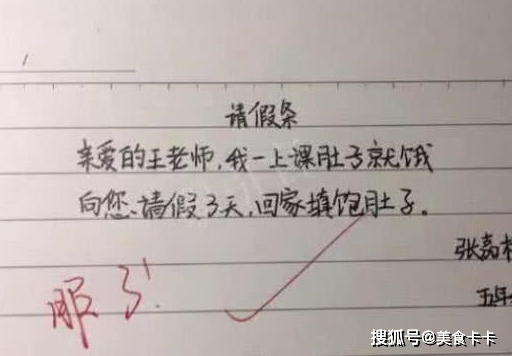 请假条
亲爱的王老师，我一上课肚子就饿
向您请假3天，回家填饱肚子。
张嘉
五年
服了！
搜狐号@美食卡卡